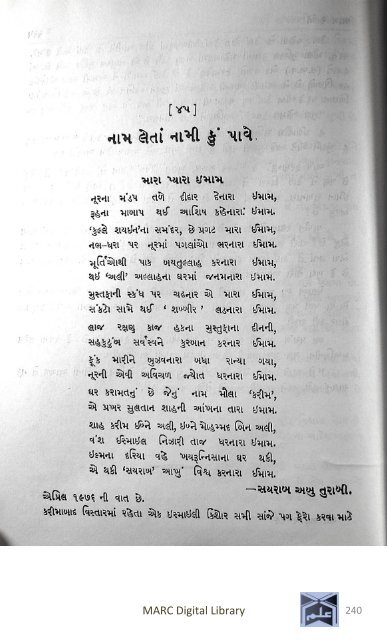 [ ૪૫ ]
નામ લેતાં નામી કું પાવે
મારા પ્યારા ઇમામ
નૂરના મંડપ તળે દીદાર દેનારા ઇમામ,
રૂહના માબાપ થઈ આશિષ કહેનારા ઇમામ.
'કુલ્લે શયઇન'ના સમંદર, છે પ્રગટ મારા ઇમામ,
નભ-ધરા પર નૂરમાં પગલાંઓ ભરનારા ઇમામ.
મૂર્તિઓથી પાક બયતુલ્લાહ કરનારા ઇમામ,
થઈ 'અલી' અલ્લાહના ઘરમાં જનમનારા ઇમામ.
મુસ્તફાની સ્કંધ પર ચઢનાર એ મારા ઇમામ,
સંકટો સામે થઈ 'શબ્બીર' લઢનારા ઇમામ.
લાજ રક્ષણ કાજ હકના મુસ્તફાના દીનની,
સહકુટુંબ સર્વસ્વને કુરબાન કરનાર ઇમામ.
ફૂંક મારીને બુઝવનારા બધા રાન્યા ગયા,
નૂરની એવી અવિચળ જ્યોત ધરનારા ઇમામ.
ઘર કરામતનું છે જેનું નામ મૌલા 'કરીમ',
એ પ્રખર સુલતાન શાહની આંખના તારા ઇમામ.
શાહ કરીમ ઇબ્ને અલી, ઇબ્ને મોહમ્મદ બિન અલી,
વંશ ઇસ્માઇલ નિઝારી તાજ ધરનારા ઇમામ.
ઇલ્મના દરિયા વહે ખયરૂન્નિસાના ઘર થકી,
એ થકી 'સયરાબ' આખું વિશ્વ કરનારા ઇમામ.
—સયરાબ અબુ તુરાબી.
એપ્રિલ ૧૯૭૬ ની વાત છે.
કરીમાબાદ વિસ્તારમાં રહેતા એક ઇસ્માઇલી કિશોર સમી સાંજે પગ ફેરો કરવા માટે
MARC Digital Library
240